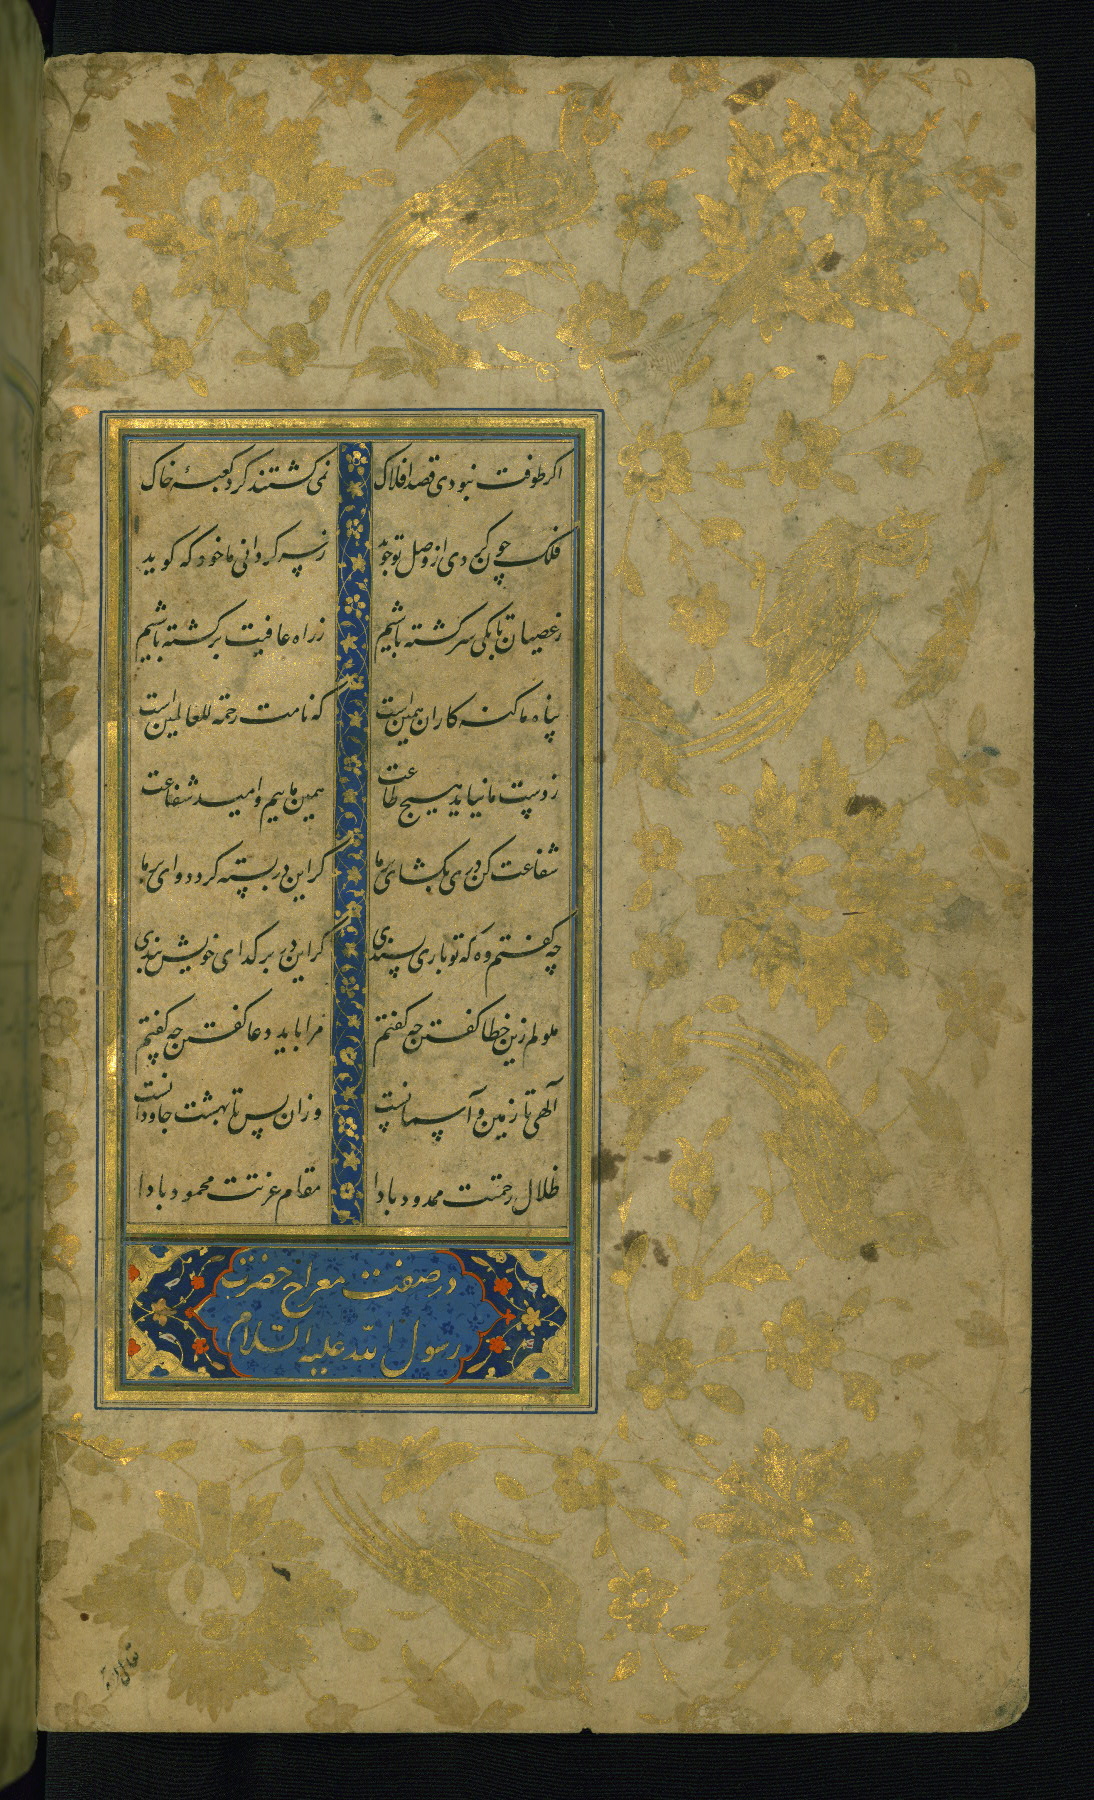 اکر طوفت نبودی قصد افلاک نمی کشتند کرد کعبهٔ خاک
فلک چون کج دی از وصل تو جوید زپیر کروانی ما خود که کوید
زعصیان تا بکی سرکشته باشیم زراه عافیت برکشته باشیم
پناه ما کنه کاران همین است که نامت رحمة للعالمین است
زدست ما نیاید هیچ طاعت همین ماییم و امید شفاعت
شفاعت کن دری بکشای بر ما کر این در بسته کردد وای بر ما
چه کفتم وه که تو باری پسندی کر این در بر کدای خویش بندی
ملولم زین خطا کفتن چه کفتم مرا باید دعا کفتن چه کفتم
آلهی تا زمین و آسمانست وزان پس تا بهشت جاودانست
ظلال رحمتت ممدود بادا مقام عزتت محمود بادا
در صفت معراج حضرت
رسول الله علیه السلام